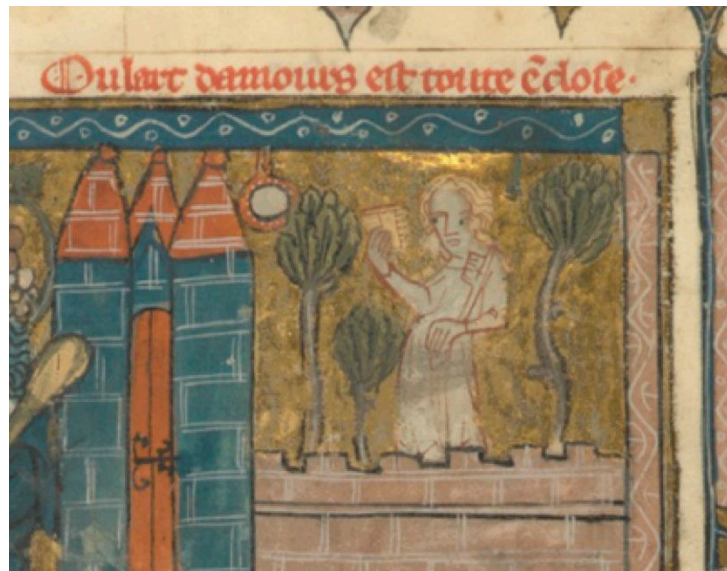 Ou lart damours est toute ẽclose·